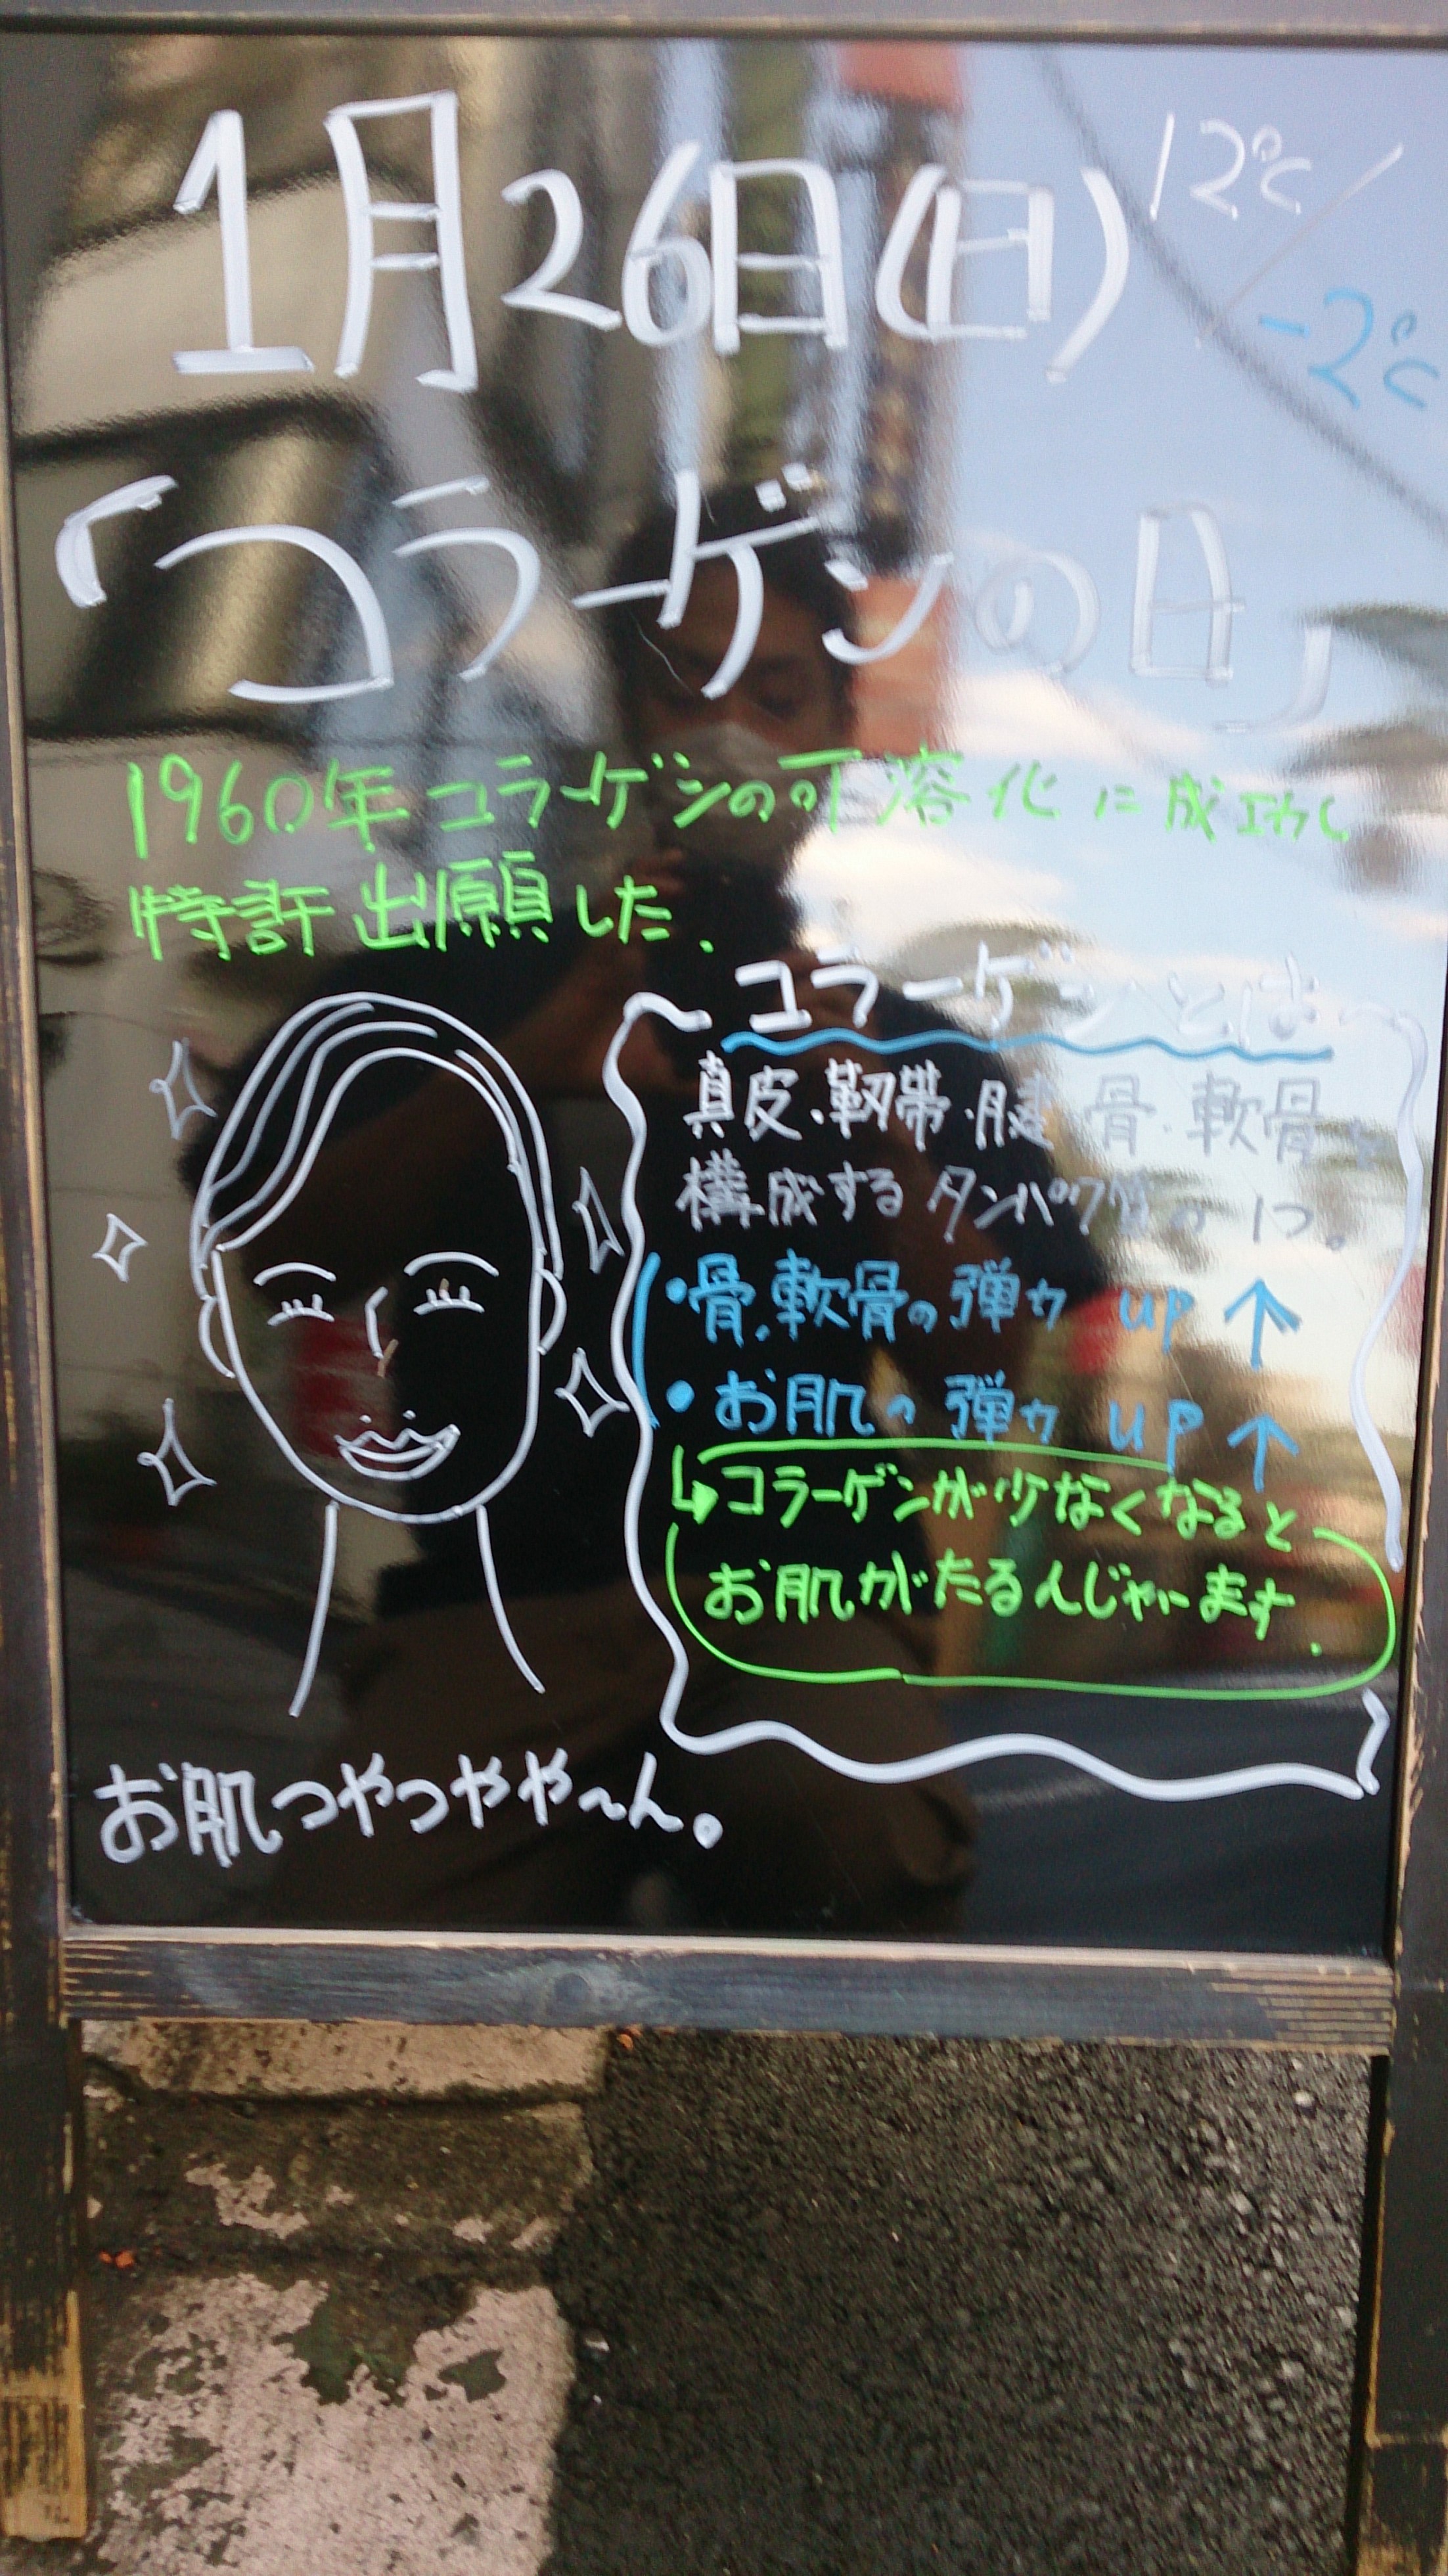 1月26日(日) 12℃/-2℃
「コラーゲンの日」
1960年コラーゲンの可溶化に成功し
特許出願した.
コラーゲンとは
真皮.靭帯.腱.骨.軟骨を
構成するタンパク質の1つ。
・骨.軟骨の弾力 up ↑
・お肌の弾力 up ↑
↳コラーゲンが少なくなると
お肌がたるんじゃいます.
お肌つやつやや〜ん。